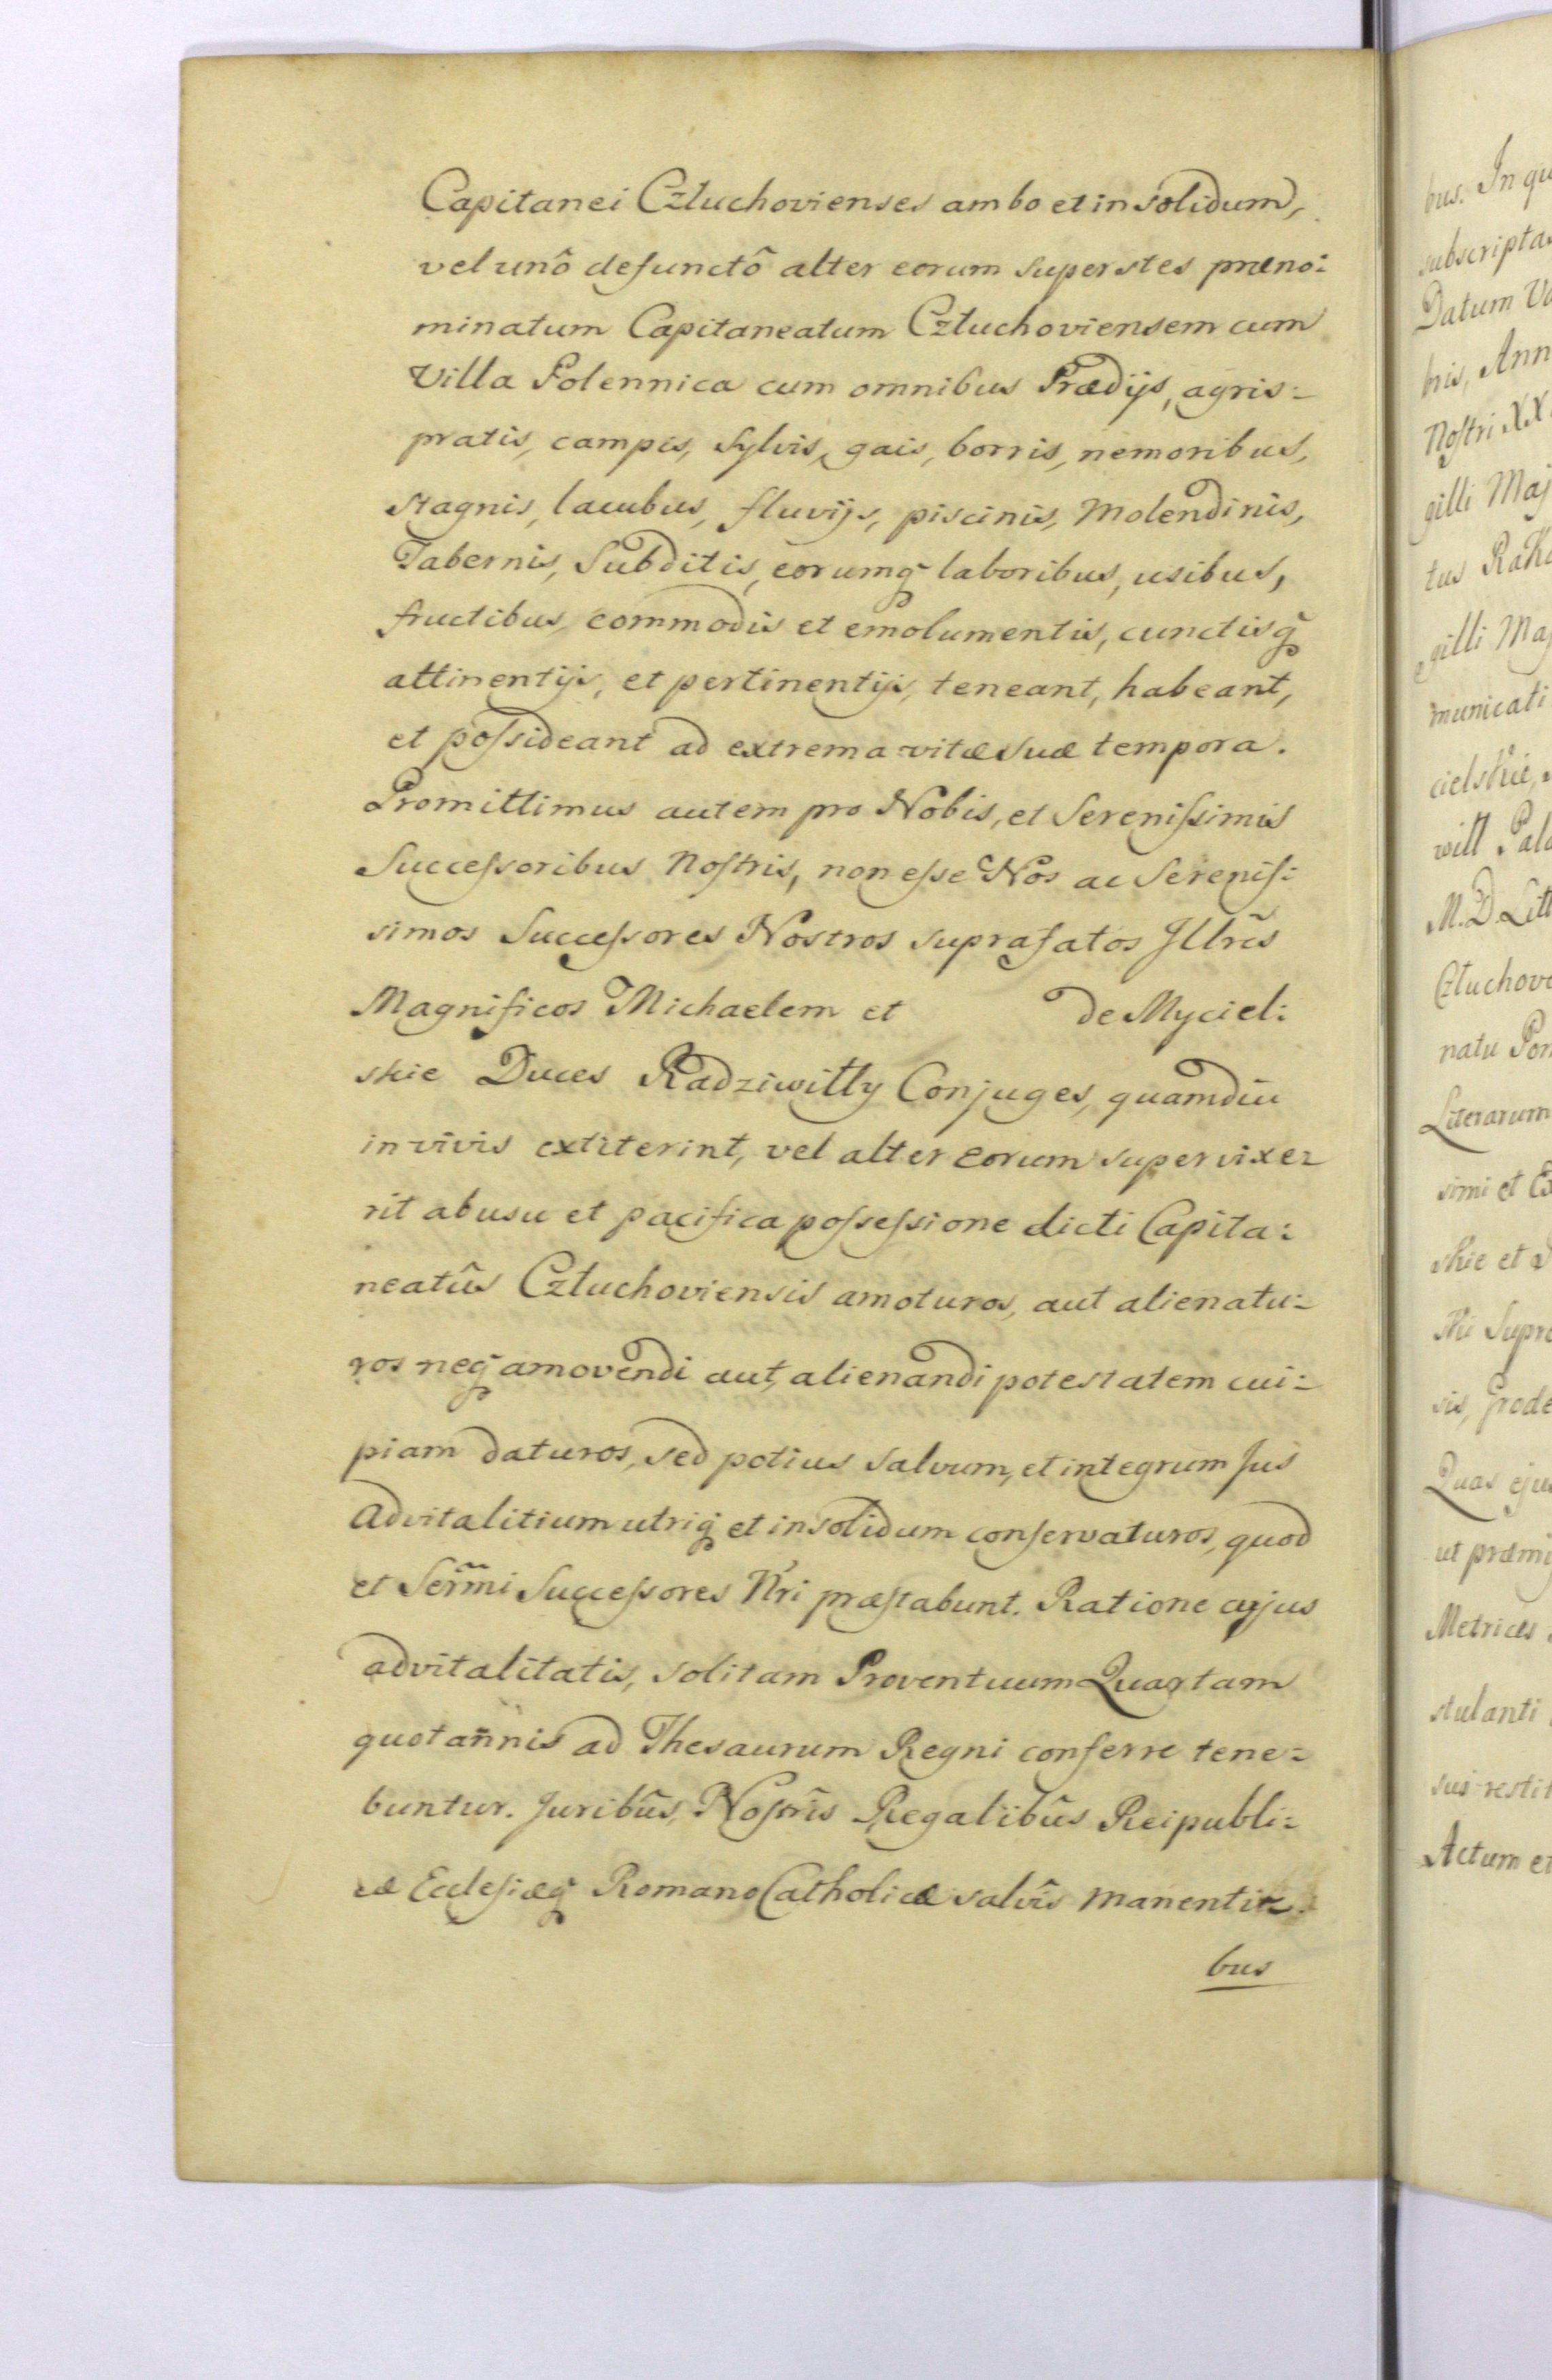 Capitanei Człuchovienses ambo et in solidum,
vel unô defunctô alter eorum superstes præno:
minatum Capitaneatum Człuchoviensem cum
Villa Polennica cum omnibus Prædijs, agris:
pratis, campis, sylvis, gais, borris, nemoribus,
stagnis, lacubus, fluvijs, piscinis, Molendinis,
Tabernis, Subditis, eorumq̃ laboribus, usibus,
fructibus, commodis et emolumentis, cunctisq̃
attinentijs, et pertinentijs, teneant, habeant,
et poſsideant ad extrema vitæ suæ tempora.
Promittimus autem pro Nobis, et Sereniſsimis
Succeſsoribus Noſtris, non eſse Nos ac Sereniſ:
simos Succeſsores Nostros suprafatos Jllr̃es
Magnificos Michaelem et de Myciel:
skie Duces Radziwiłły Conjuges, quamdiu
in vivis extiterint, vel alter eorum supervixe:
rit ab usu et pacifica poſseſsione dicti Capita:
neatûs Człuchoviensis amoturos, aut alienatu:
ros neq̃ amovendi aut, alienandi potestatem cui:
piam daturos, sed potius salvum, et integrum Jus
advitalitium utriq̃ et in solidum conſervaturos, quod
et Ser̃mi Succeſsores Nr̃i præſtabunt. Ratione cujus
advitalitatis, solitam Proventuum Quartam
quotan̄nis ad Thesaurum Regni conferre tene:
buntur. Juribûs, Noſtrîs Regalibûs Reipubli:
cæ Eccleſiæq̃ Romano Catholicæ salvîs manenti:
bus
bus. In qu
subscripta
Datum Va
bris, Ann
Noſtri XX
gilli Maj
tus Rak
gilli Maj
municati
cielskie,
wiłł Pala
M. D. Litt
Człuchov
natu Pom
Literarum
simi et Ex
skie et D
Supra
sis, Grode
Quas eju
ut præmi
Metrices
stulanti
sui restit
Actum et